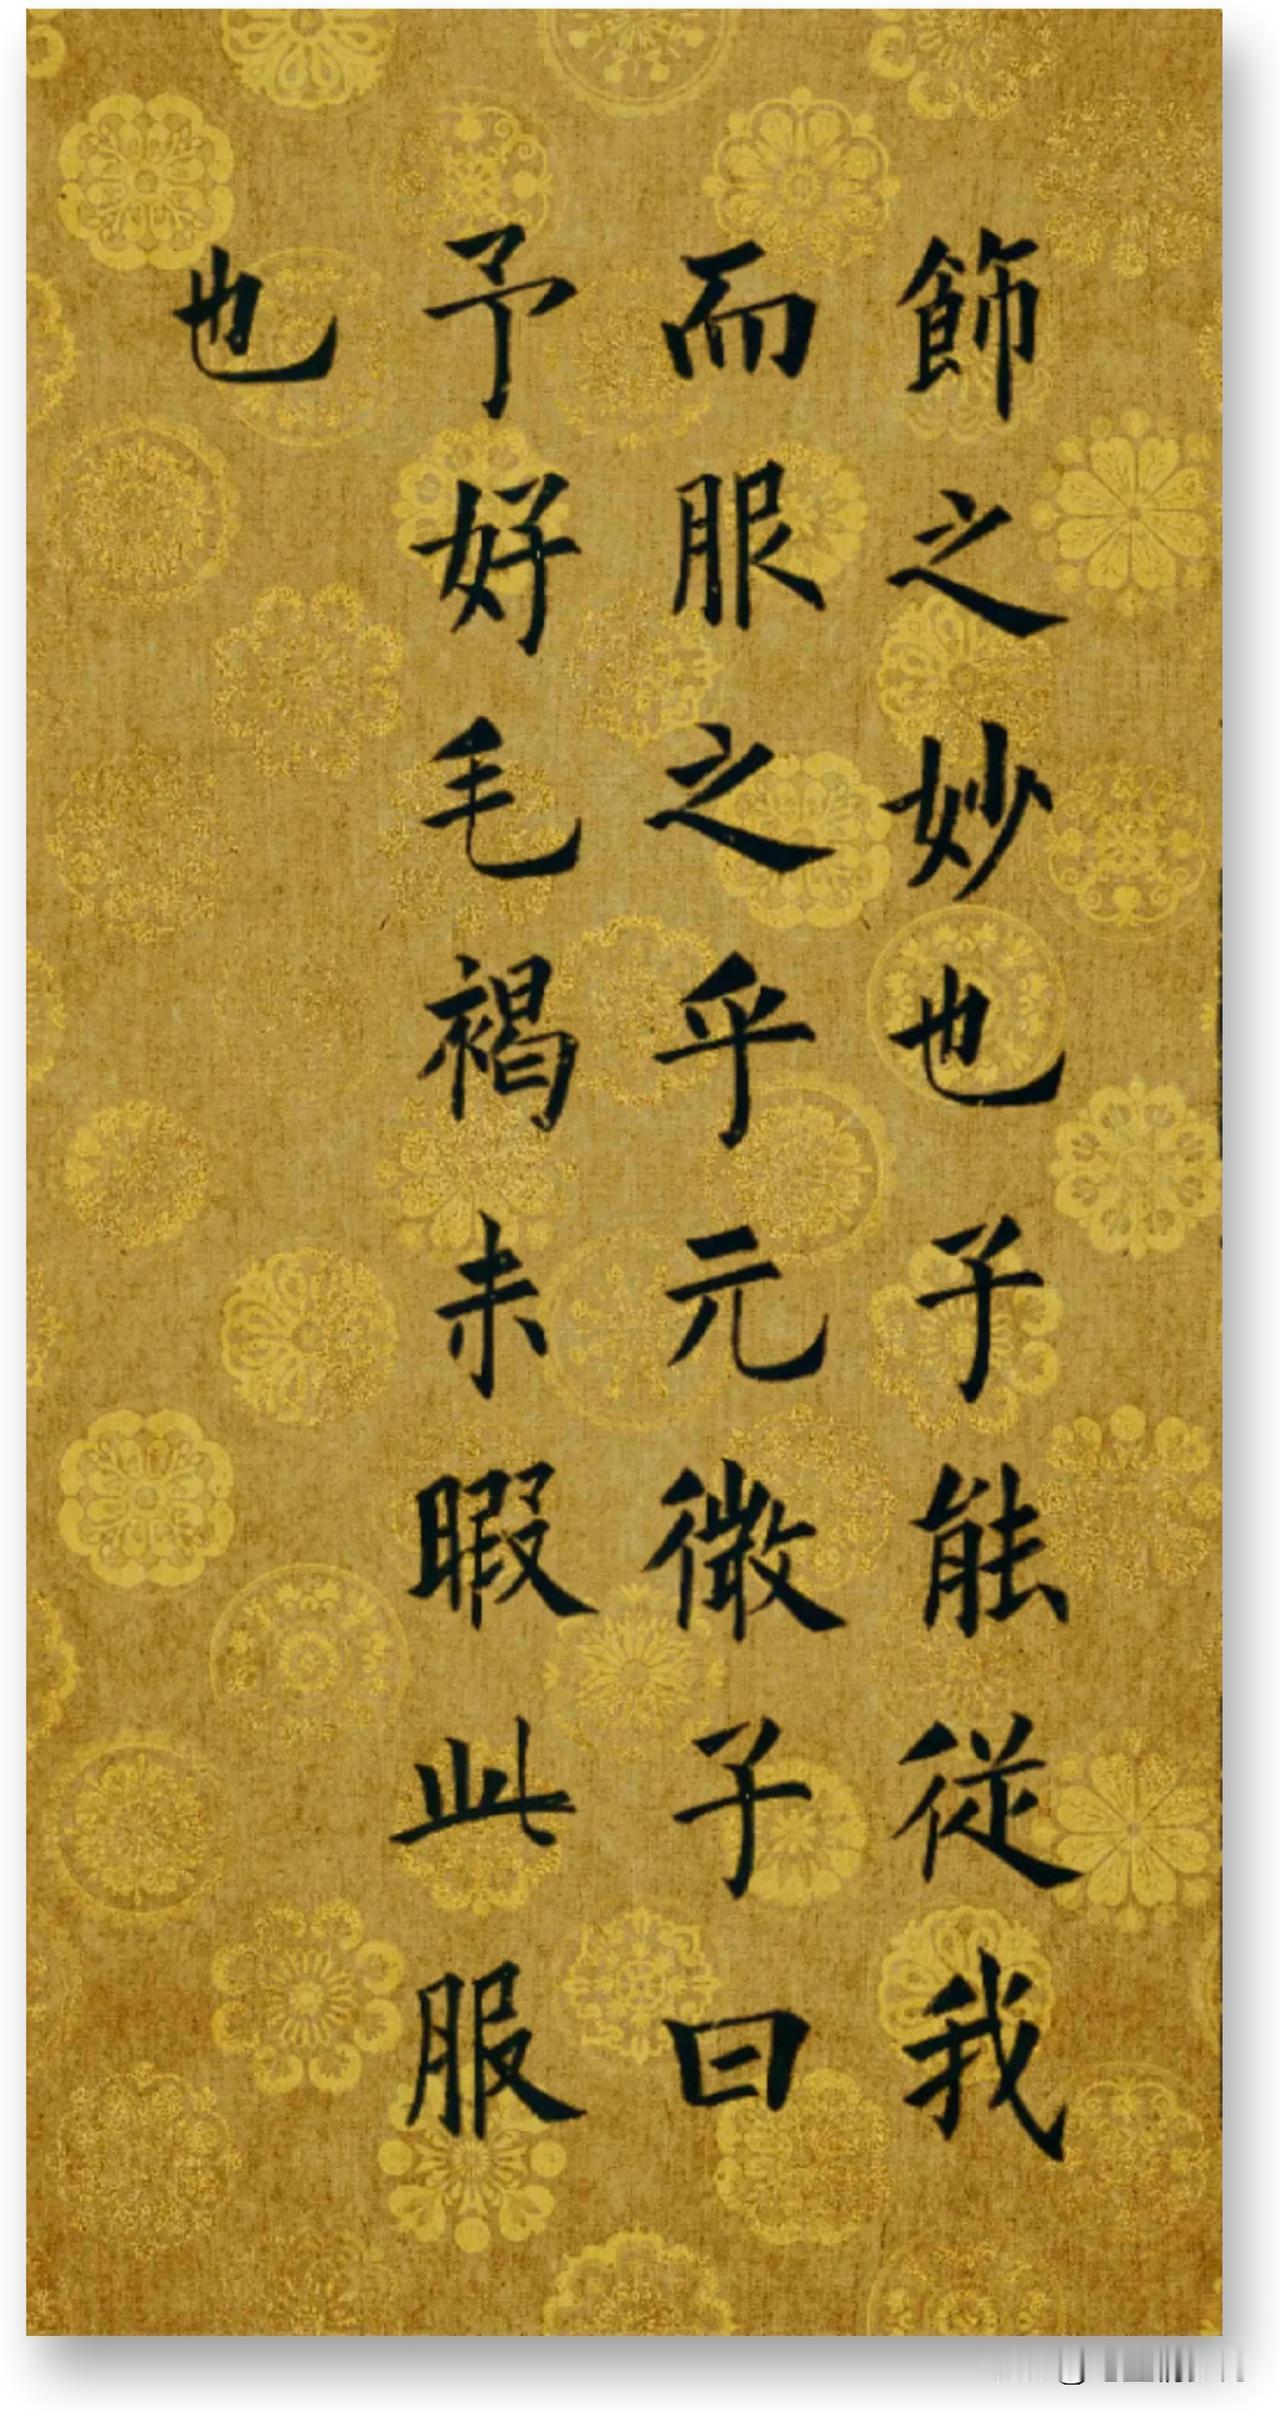 飾之妙也子能從我
而服之乎元微子曰
予好毛褐未暇此服
也